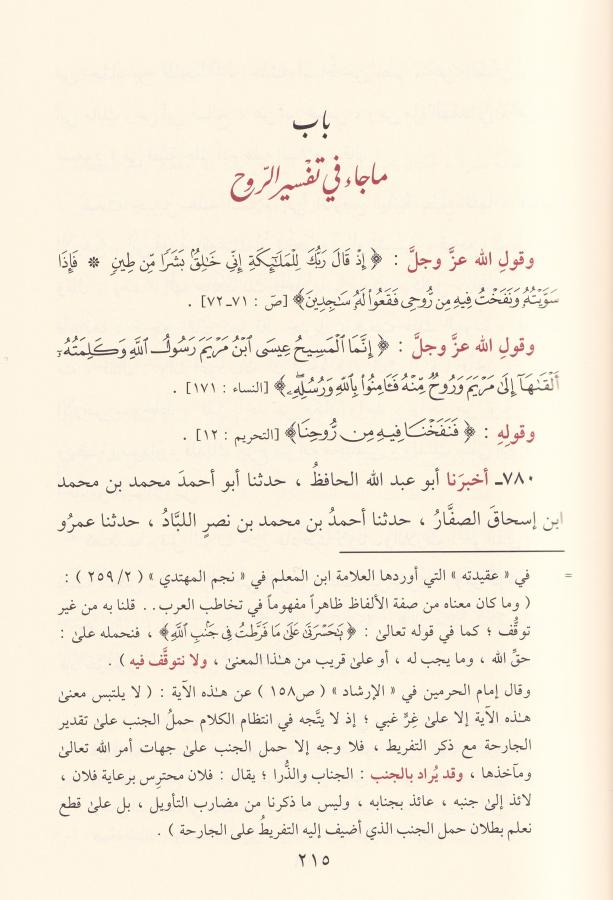 باب
ما جاء في تفسير الرّوح
وقولِ الله عزَّ وجلَّ : ﴿ إِذْ قَالَ رَبُّكَ لِلْمَلَٰٓئِكَةِ إِنِّي خَٰلِقٌۢ بَشَرٗا مِّن طِينٖ * فَإِذَا
سَوَّيْتُهُۥ وَنَفَخْتُ فِيهِ مِن رُّوحِي فَقَعُواْ لَهُۥ سَٰجِدِينَ﴾ [صۤ : ٧١-٧٢] .
وقولِ الله عزَّ وجلَّ : ﴿ إِنَّمَا ٱلْمَسِيحُ عِيسَى ٱبْنُ مَرْيَمَ رَسُولُ ٱللَّهِ وَكَلِمَتُهُۥٓ
أَلْقَىٰهَآ إِلَىٰ مَرْيَمَ وَرُوحٌ مِّنْهُ فَـَٔامِنُواْ بِٱللَّهِ وَرُسُلِهِۦ﴾ [النساء : ١٧١] .
وقولِهِ : ﴿ فَنَفَخْنَا فِيهِ مِن رُّوحِنَا﴾ [التحريم : ١٢] .
٧٨٠ـ أخبرَنا أبو عبد الله الحافظُ ، حدثنا أبو أحمدَ محمد بن محمد
ابن إسحاقَ الصفَّارُ ، حدثنا أحمدُ بن محمد بن نصرٍ اللبَّادُ ، حدثنا عمرُو
= في « عقيدته » التي أوردها العلامة ابن المعلم في « نجم المهتدي » ( ٢/ ٢٥٩ ) :
( وما كان معناه من صفة الألفاظ ظاهراً مفهوماً في تخاطب العرب . . قلنا به من غير
توقُّف ؛ كما في قوله تعالىٰ : ﴿ بَٰحَسْرَتَىٰ عَلَىٰ مَا فَرَّطتُ فِي جَنۢبِ ٱللَّهِ﴾ ، فنحمله علىٰ :
حقِّ الله ، وما يجب له ، أو علىٰ قريب من هـٰذا المعنىٰ ، ولا نتوقَّف فيه ) .
وقال إمام الحرمين في « الإرشاد » ( ص١٥٨ ) عن هـٰذه الآية : ( لا يلتبس معنىٰ
هـٰذه الآية إلا علىٰ غِرٍّ غبي ؛ إذ لا يتَّجه في انتظام الكلام حملُ الجنب علىٰ تقدير
الجارحة مع ذكر التفريط ، فلا وجه إلا حمل الجنب علىٰ جهات أمر الله تعالىٰ
ومآخذها ، وقد يُراد بالجنب : الجناب والذُّرا ؛ يقال : فلان محترِس برعاية فلان ،
لائذ إلىٰ جنبه ، عائذ بجنابه ، وليس ما ذكرنا من مضارب التأويل ، بل علىٰ قطع
نعلم بطلان حمل الجنب الذي أضيف إليه التفريطُ على الجارحة ) .
٢١٥